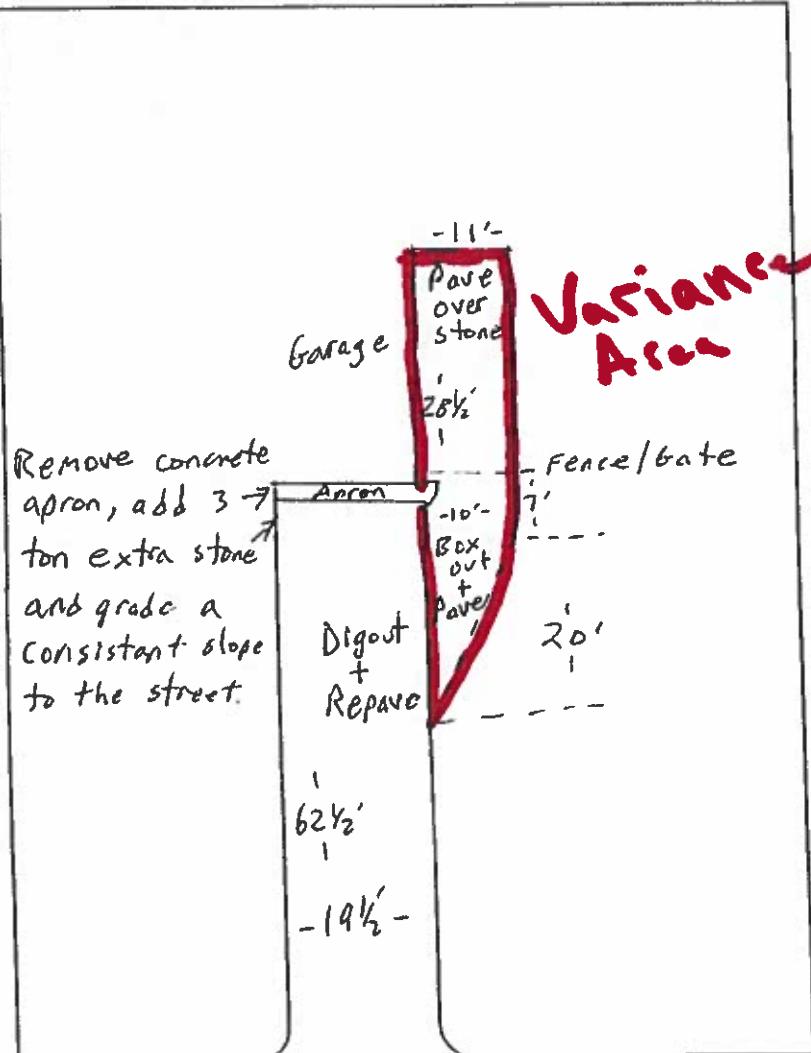 -11'-
Pave
over
stone
Variance
Area
Garage
28½'
Remove concrete
apron, add 3
ton extra stone
and grade a
consistant slope
to the street.
Apron
Fence/Gate
7'
-10'-
Box
out
+
Pave
20'
Digout
+
Repave
62½'
-19½'-